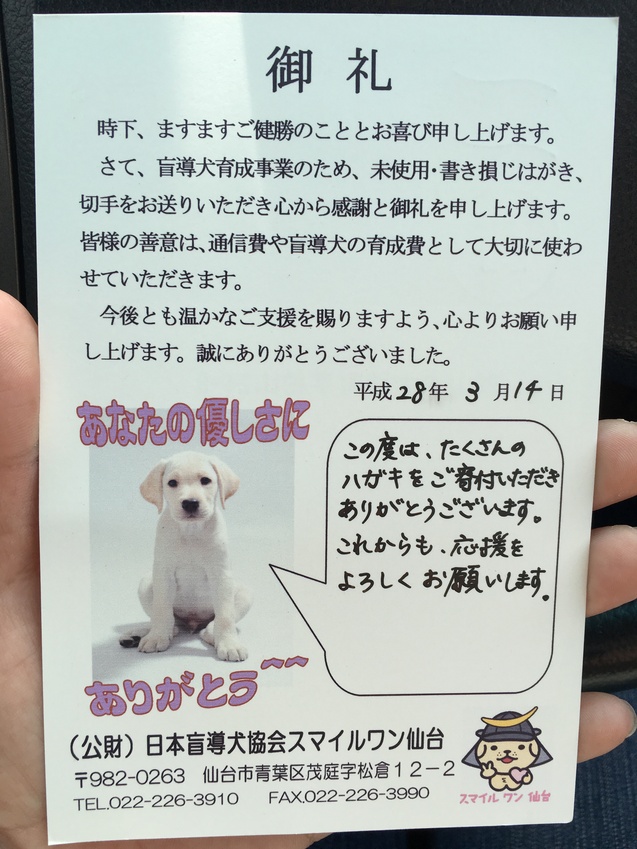 御 礼
時下、ますますご健勝のこととお喜び申し上げます。
さて、盲導犬育成事業のため、未使用・書き損じはがき、
切手をお送りいただき心から感謝と御礼を申し上げます。
皆様の善意は、通信費や盲導犬の育成費として大切に使わ
せていただきます。
今後とも温かなご支援を賜りますよう、心よりお願い申
し上げます。誠にありがとうございました。
平成28年 3 月14日
あなたの優しさに
この度は、たくさんの
ハガキをご寄付いただき
ありがとうございます。
これからも、応援を
よろしくお願いします。
ありがとう^^
(公財)日本盲導犬協会スマイルワン仙台
〒982-0263 仙台市青葉区茂庭字松倉12-2
TEL.022-226-3910 FAX.022-226-3990
スマイル ワン 仙台